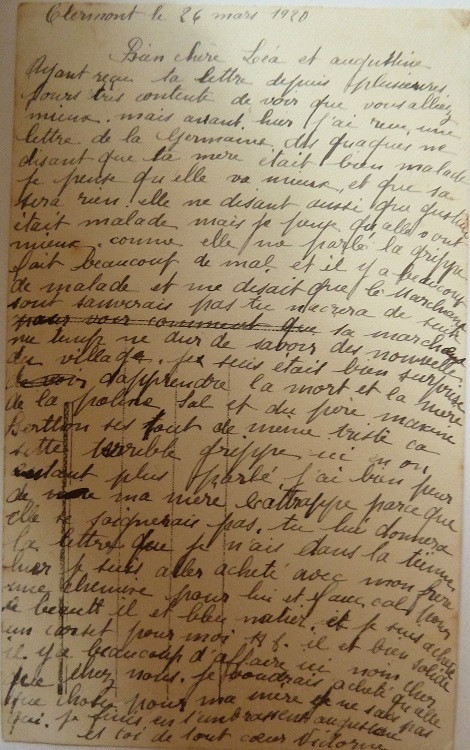 Clermont le 26 mars 1920
Bien chère Léa et augustine
Ayant reçu ta lettre depuis plusieures
jours très contente de voir que vous alliez
mieux. mais avant hier j'ai reçu une
lettre de la Germaine des quaques me
disant que ta mère était bien malade
je pense qu'elle va mieux, et que sa
sera rien. elle me disant aussi que
était malade mais je pense qu'elle vont
mieux. comme elle me parle la grippe
fait beaucoup de mal et il y a beaucoup
de malade et me disait que le Marchand
sont sauverais pas tu mecrira de suite
pour voir comment que sa marchais
me temp me dur de savoir des nouvelle
du village. je suis étais bien surprise
de voir d'apprendre la mort et la mère
de la poline Sol et du père maxime
Berthon ses tout de même triste ca
sette terrible grippe ici n on
plus parlé j'ai bien peur
de ma mère l'attrappe parce que
elle se soignerais pas. tu lui donnera
la lettre que je mais dans la tienne
hier je suis aller acheté avec mon frère
une chemise pour lui et faux col pour
il et bleu je suis acheté
un corset pour moi il et bien solide
il y a beaucoup d'affaire ici moin cher
que chez nous. je voudrais acheté quelle
que chose pour ma mère je ne sais pas
quoi. je finis en t'embrassent augustine
et toi de tout cœur Victorine